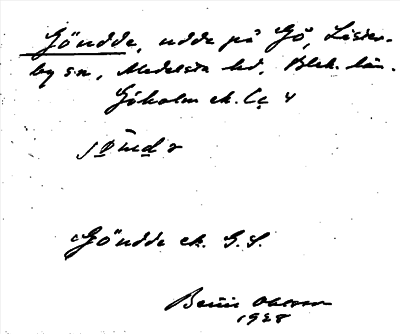 Göudde, udde på Gö, Lister-
by sn, Medelsta hd, Blek. län.
Göholm ek. Cc 4
Göudde ek. G.S.
Bertil Ohlsson
1928